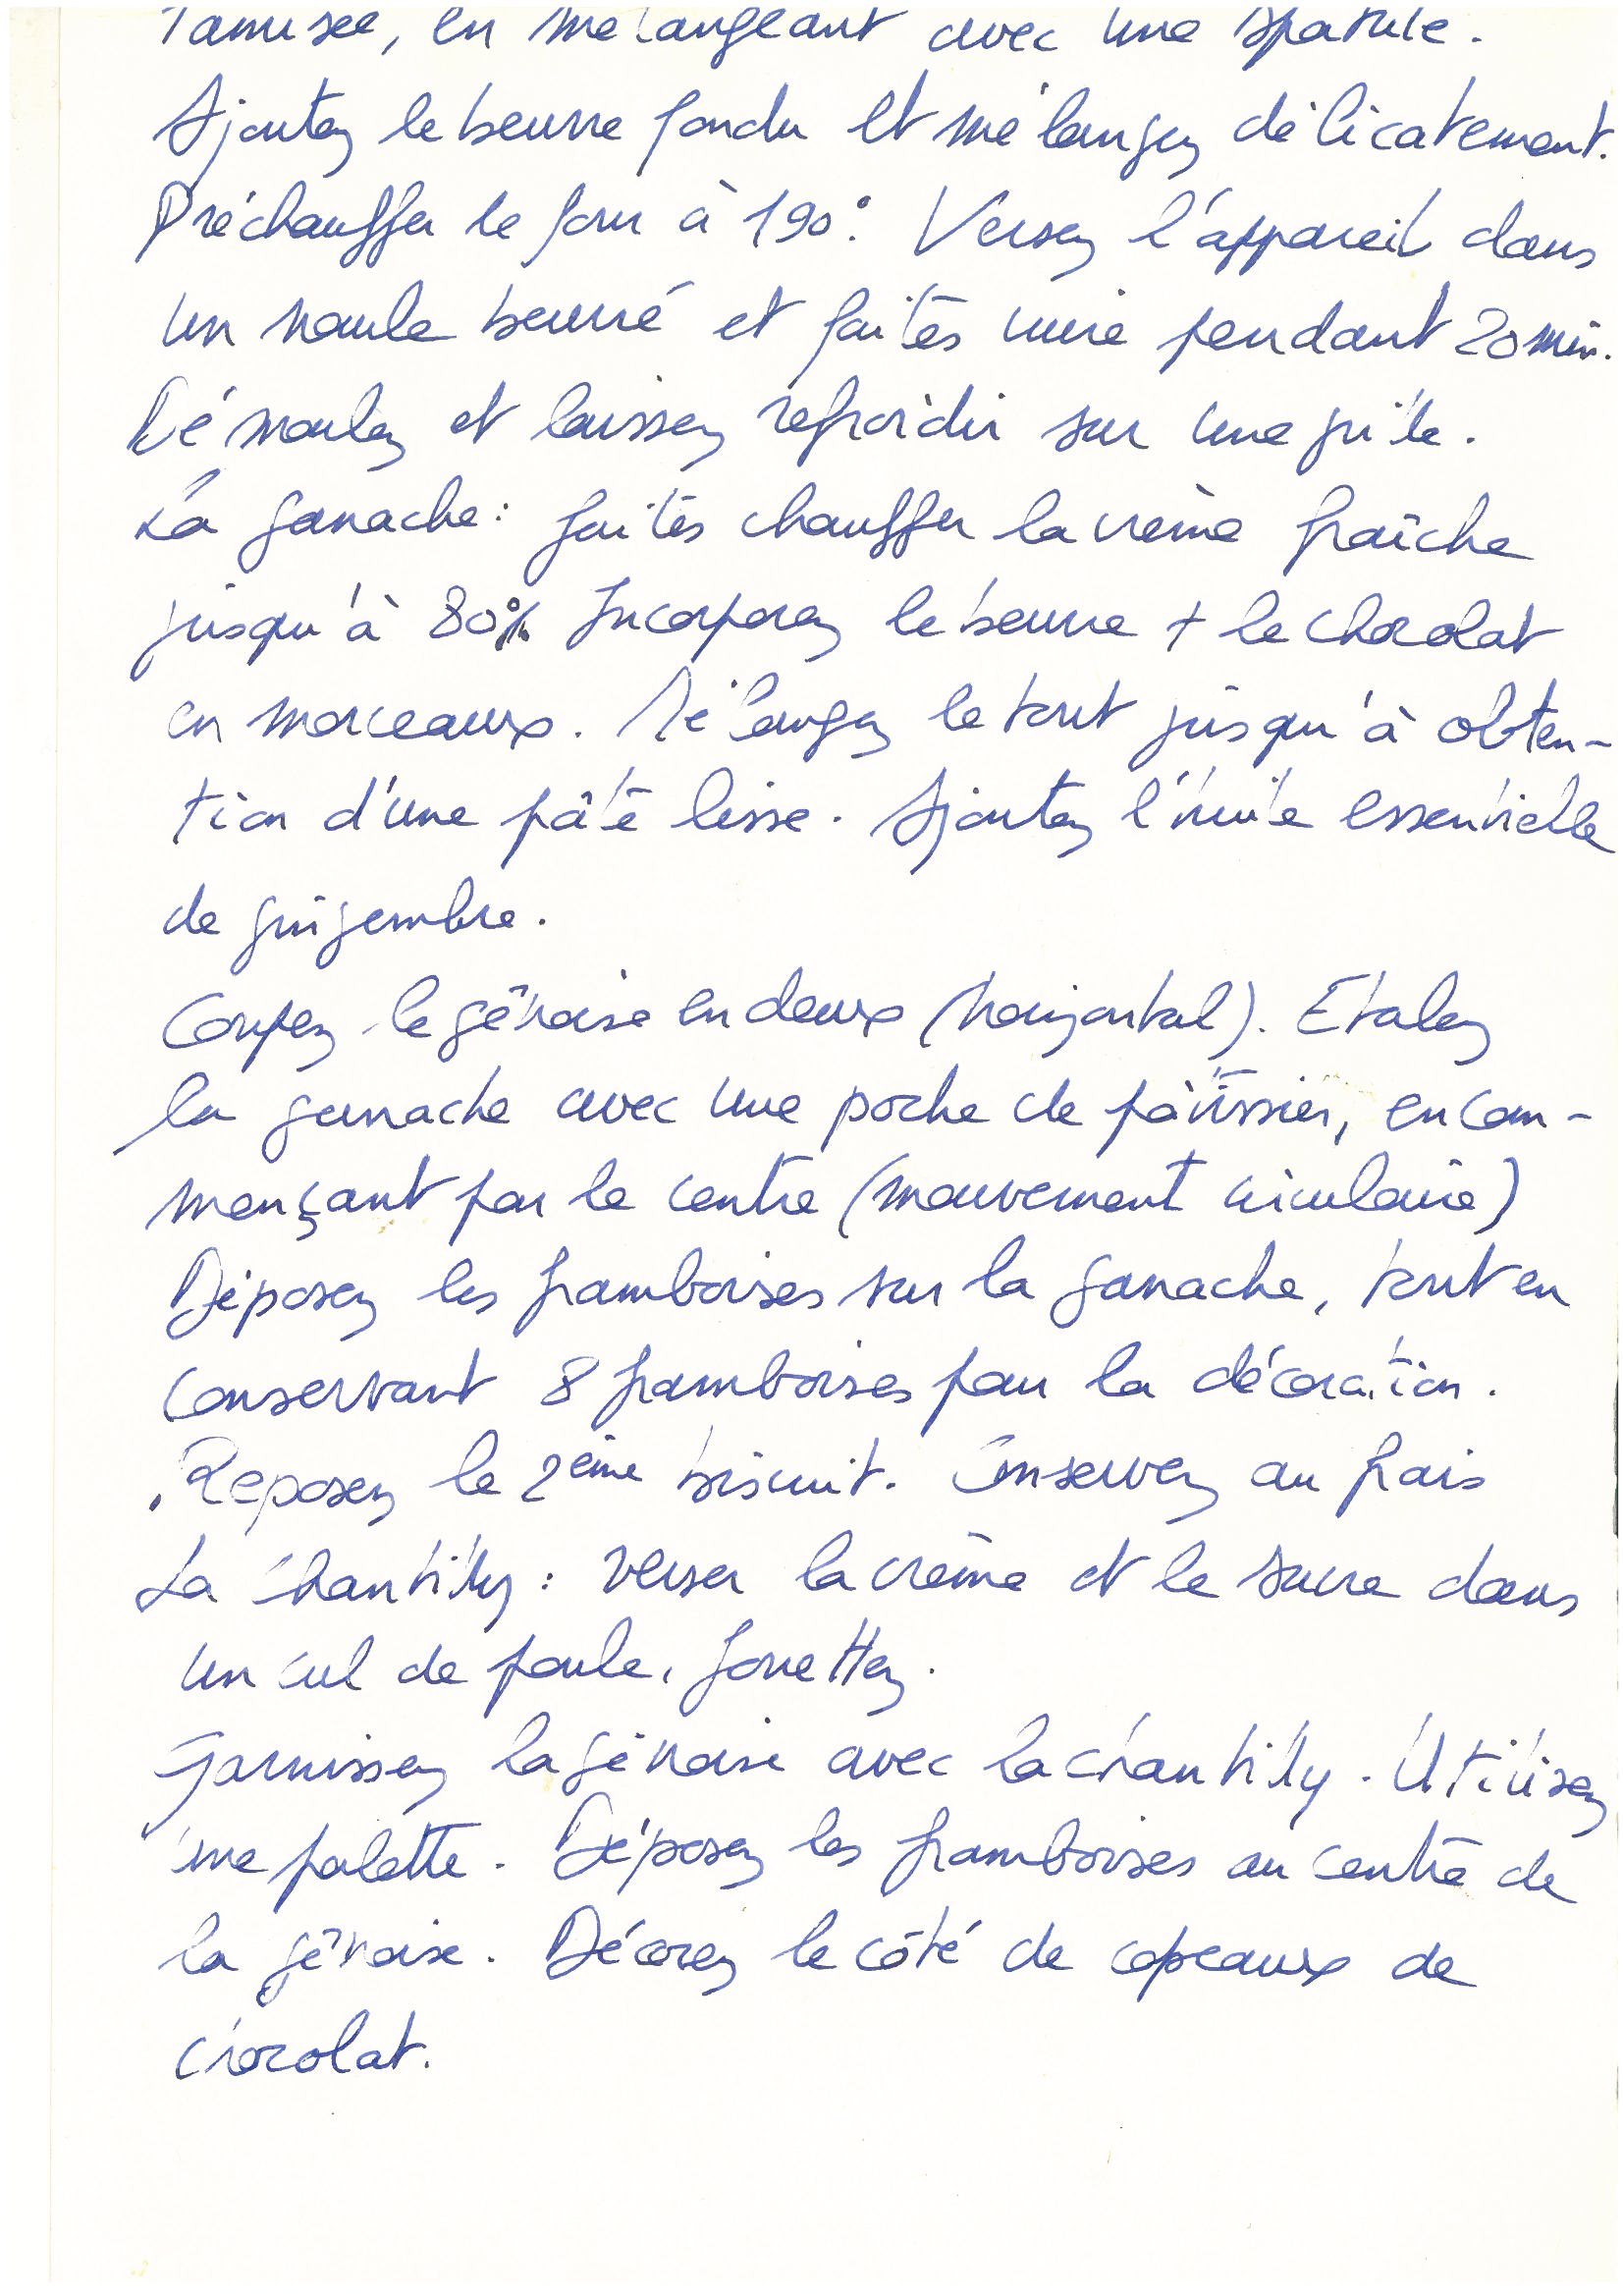 Tamisée, en mélangeant avec une spatule.
Ajoutez le beurre fondu et mélangez délicatement.
Préchauffer le four à 190°. Versez l'appareil dans
un moule beurré et faites cuire pendant 20 min.
Démoulez et laissez refroidir sur une grille.
La ganache : faites chauffer la crème fraîche
jusqu'à 80°. Incorporez le beurre + le chocolat
en morceaux. Mélangez le tout jusqu'à obten-
tion d'une pâte lisse. Ajoutez l'huile essentielle
de gingembre.
Coupez la génoise en deux (horizontal). Etalez
la ganache avec une poche de pâtissier, en com-
mençant par le centre (mouvement circulaire)
Déposez les framboises sur la ganache, tout en
conservant 8 framboises pour la décoration.
Reposez le 2ème biscuit. Conservez au frais
La chantilly : verser la crème et le sucre dans
un cul de poule, fouettez.
Garnissez la génoise avec la chantilly. Utilisez
une palette. Déposez les framboises au centre de
la génoise. Décorez le côté de copeaux de
chocolat.